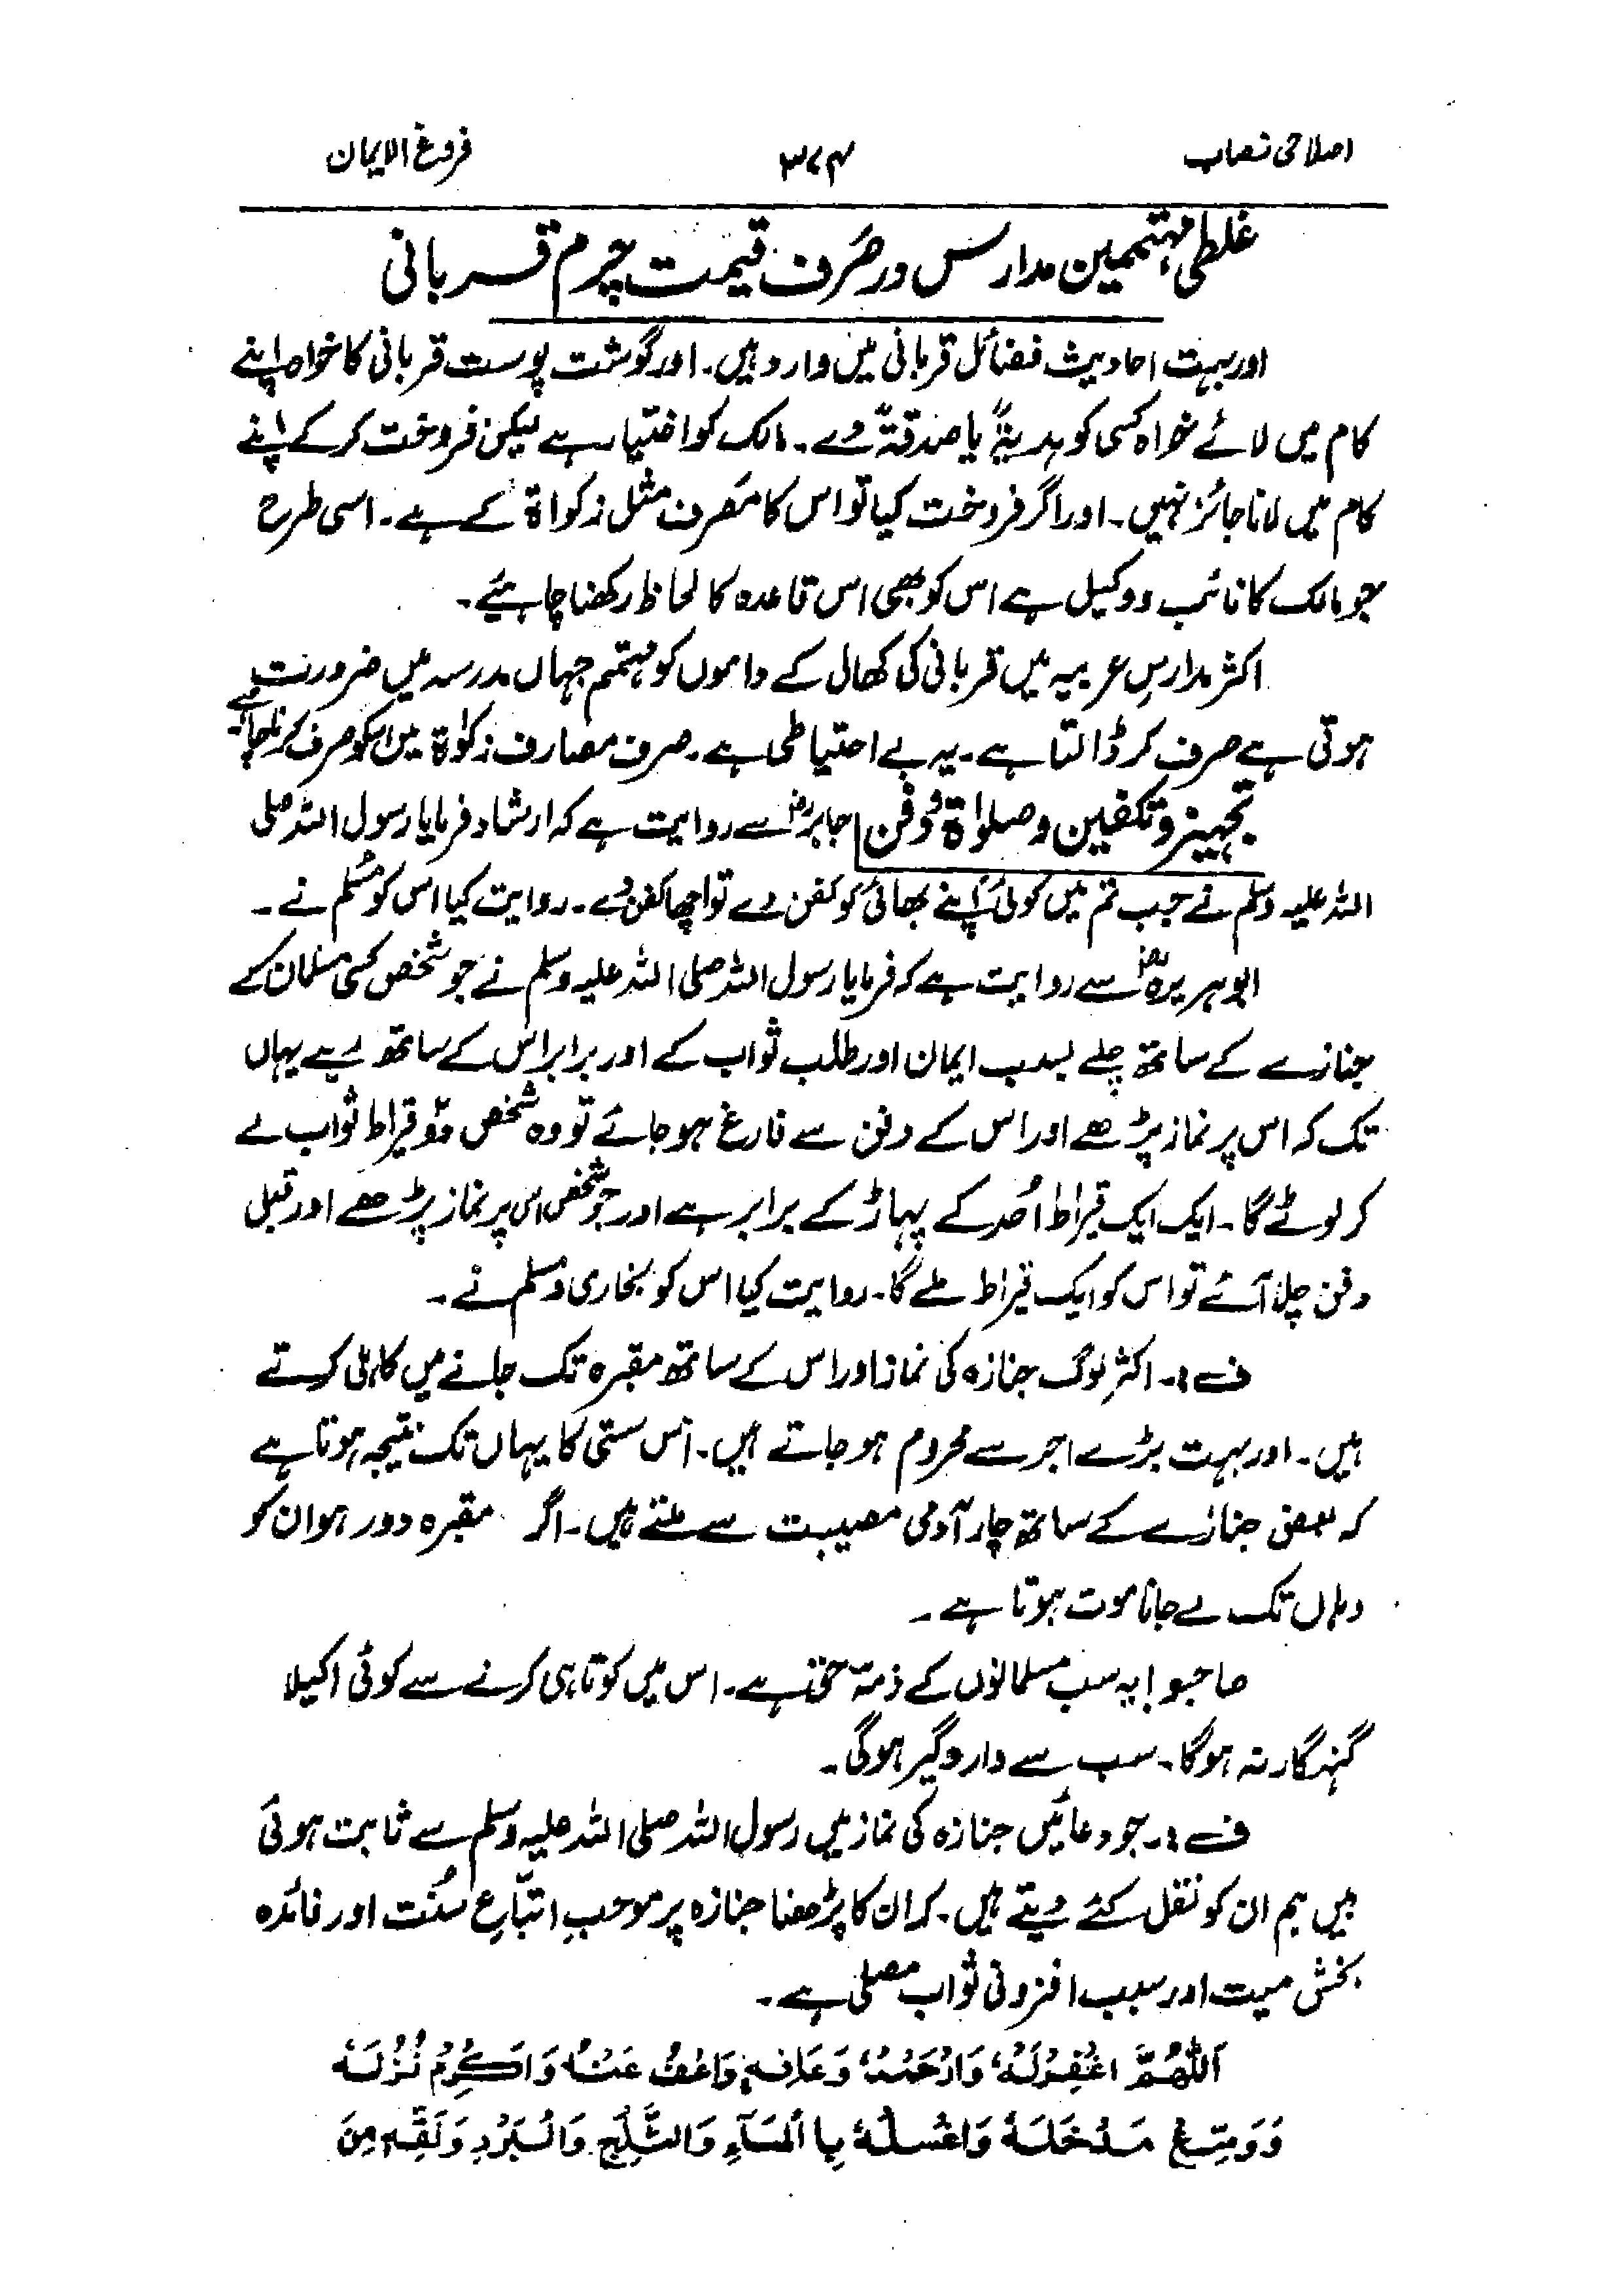 اصلاحی نصاب ۳۷۴ فروغ الایمان
غلطی مہتممین مدارس در صَرف قیمت چرم قربانی
اور بہت احادیث فضائل قربانی میں وارد ہیں۔ اور گوشت پوست قربانی کا خواہ اپنے
کام میں لائے خواہ کسی کو ہدیۃً یا صدقۃً دے۔ مالک کو اختیار ہے لیکن فروخت کرکے اپنے
کام میں لانا جائز نہیں۔ اور اگر فروخت کیا تو اس کا مَصرف مثل زکواۃ کے ہے۔ اسی طرح
جو مالک کا نائب و وکیل ہے اس کو بھی اس قاعدہ کا لحاظ رکھنا چاہیئے۔
اکثر مدارسِ عربیہ میں قربانی کی کھال کے داموں کو مہتمم جہاں مدرسہ میں ضرورت
ہوتی ہے صرف کر ڈالتا ہے۔ یہ بے احتیاطی ہے۔ صرف مصارف زکوٰۃ میں اسکو صرف کرنا چاہیئے۔
تجہیز و تکفین و صلواۃ و دفن جابرؓ سے روایت ہے کہ ارشاد فرمایا رسول اللہ صلی
اللہ علیہ وسلم نے جب تم میں کوئی اپنے بھائی کو کفن دے تو اچھا کفن دے۔ روایت کیا اس کو مُسلم نے۔
ابوہریرہؓ سے روایت ہے کہ فرمایا رسول اللہ صلی اللہ علیہ وسلم نے جو شخص کسی مسلمان کے
جنازے کے ساتھ چلے بسبب ایمان اور طلب ثواب کے اور برابر اس کے ساتھ رہے یہاں
تک کہ اس پر نماز پڑھے اور اس کے دفن سے فارغ ہو جائے تو وہ شخص دوؔ قیراط ثواب لے
کر لوٹے گا۔ ایک ایک قیراط اُحد کے پہاڑ کے برابر ہے اور جو شخص اس پر نماز پڑھے اور قبل
دفن چلا آئے تو اس کو ایک قیراط ملے گا۔ روایت کیا اس کو بخاری و مسلم نے۔
ف :۔ اکثر لوگ جنازہ کی نماز اور اس کے ساتھ مقبرہ تک جانے میں کاہلی کرتے
ہیں۔ اور بہت بڑے اجر سے محروم ہو جاتے ہیں۔ اس سستی کا یہاں تک نتیجہ ہوتا ہے
کہ بعض جنازے کے ساتھ چار آدمی مصیبت سے ملتے ہیں۔ اگر مقبرہ دور ہو ان کو
وہاں تک لے جانا موت ہوتا ہے۔
صاحبو! یہ سب مسلمانوں کے ذمہ حق ہے۔ اس میں کوتاہی کرنے سے کوئی اکیلا
گنہگار نہ ہوگا۔ سب سے داروگیر ہوگی۔
ف :۔ جو دعائیں جنازہ کی نماز میں رسول اللہ صلی اللہ علیہ وسلم سے ثابت ہوئی
ہیں ہم ان کو نقل کئے دیتے ہیں۔ کہ ان کا پڑھنا جنازہ پر موجبِ اتّباعِ سُنت اور فائدہ
بخش میت اور سبب افزونی ثواب مصلی ہے۔
اَللّٰھُمَّ اغْفِرْلَہٗ وَارْحَمْہُ وَعَافِہٖ وَاعْفُ عَنْہُ وَاَکْرِمْ نُزُلَہٗ
وَوَسِّعْ مَدْخَلَہٗ وَاغْسِلْہُ بِالْمَآءِ وَالثَّلْجِ وَالْبَرَدِ وَنَقِّہٖ مِنَ